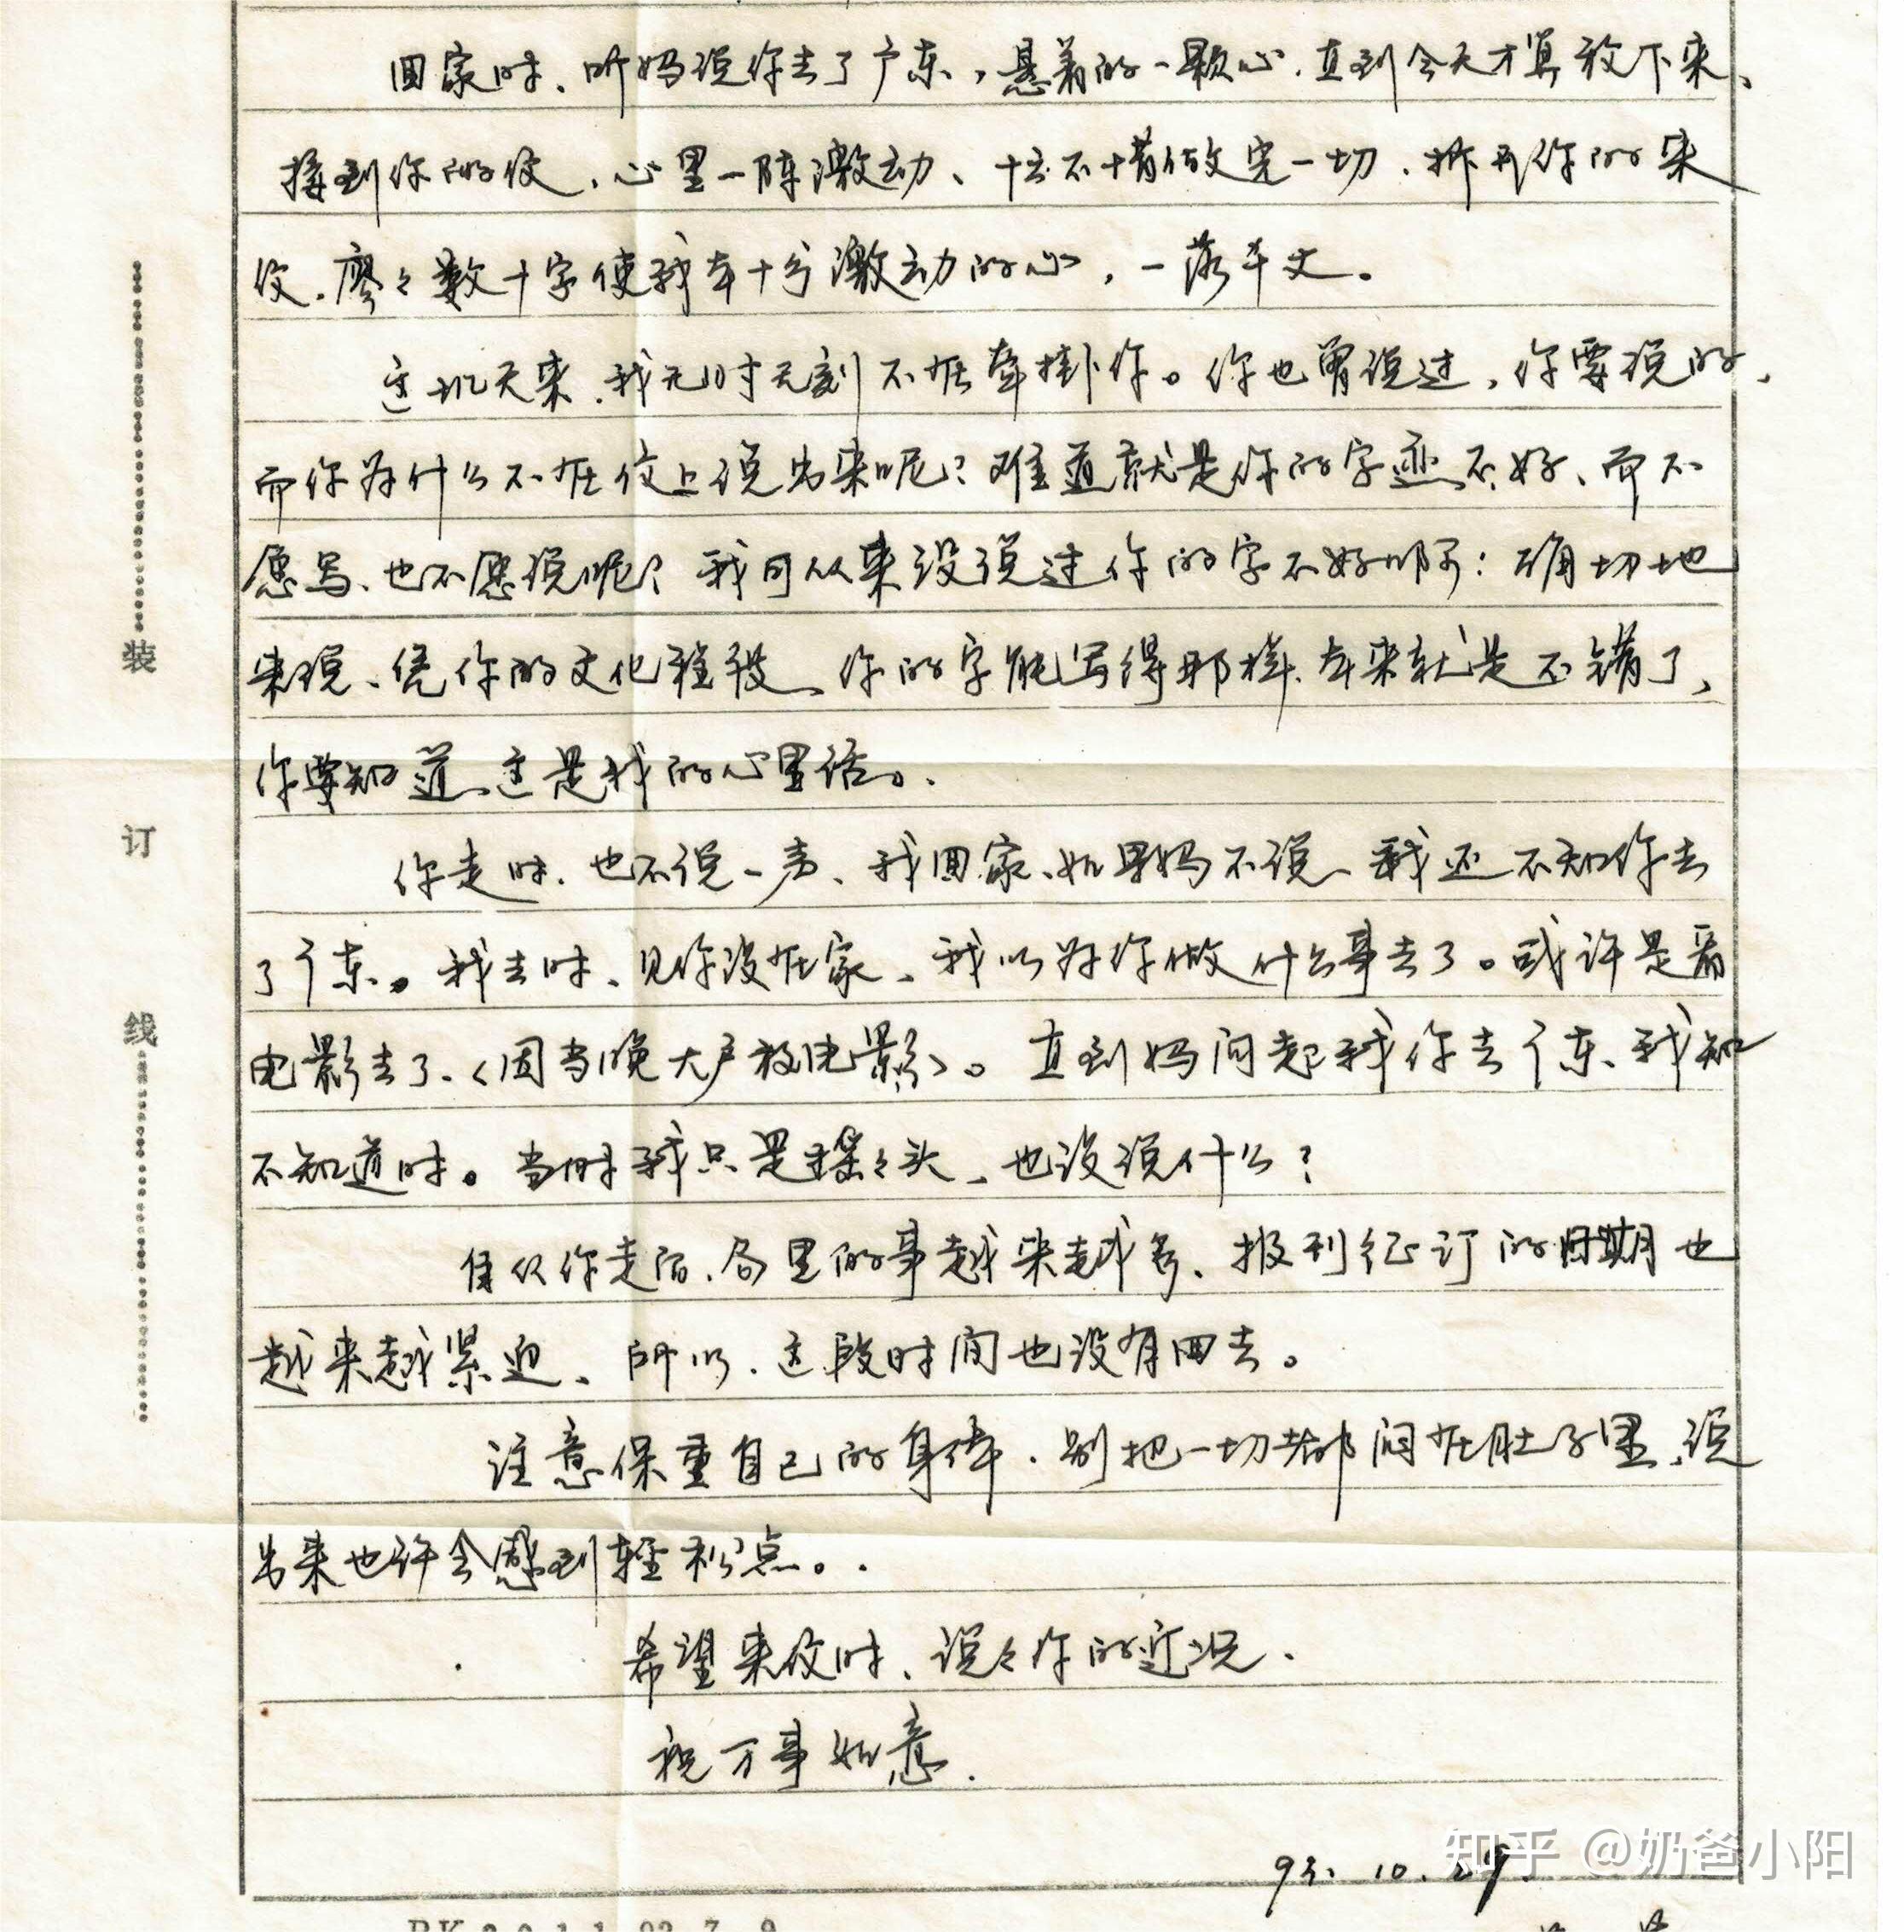 回家时、听妈说你去了广东，悬着的一颗心，直到今天才算放下来、
接到你的信，心里一阵激动、十云不惜做完一切．拆开你的来
信．廖々数十字使我本十分激动的心，一落千丈。
这几天来．我无时无刻不在牵挂你。你也曾说过，你要说的，
而你为什么不在信上说出来呢？难道就是你的字迹不好、而不
愿写、也不愿说呢？我可从来没说过你的字不好啊：确切地
来说、凭你的文化程度、你的字能写得那样．本来就是不错了，
你要知道、这是我的心里话。
你走时．也不说一声、我回家、如果妈不说、我还不知你去
了广东。我去时、见你没在家、我以为你做什么事去了。或许是看
电影去了、〈因当晚大户放电影〉。直到妈问起我你去广东、我知
不知道时。当时我只是摇々头、也没说什么？
自从你走后、局里的事越来越多、报刊征订的日期也
越来越紧迫、所以．这段时间也没有回去。
注意保重自己的身体．别把一切都闷在肚子里、说
出来也许会感到轻松点。
希望来信时、说々你的近况．
祝万事如意．
93. 10. 29.
装
订
线
知乎 @奶爸小阳